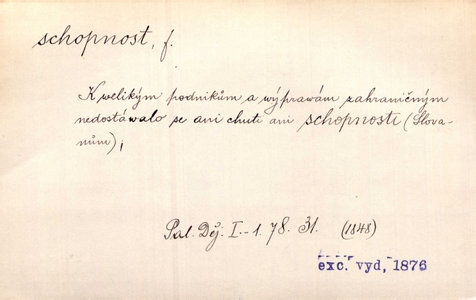 schopnost, f.
K welikým podnikům a wýprawám zahraničným
nedostáwalo se ani chuti ani schopnosti (Slova-
nům);
Pal. Děj. I.-1. 78. 31. (1848)
exc. vyd, 1876